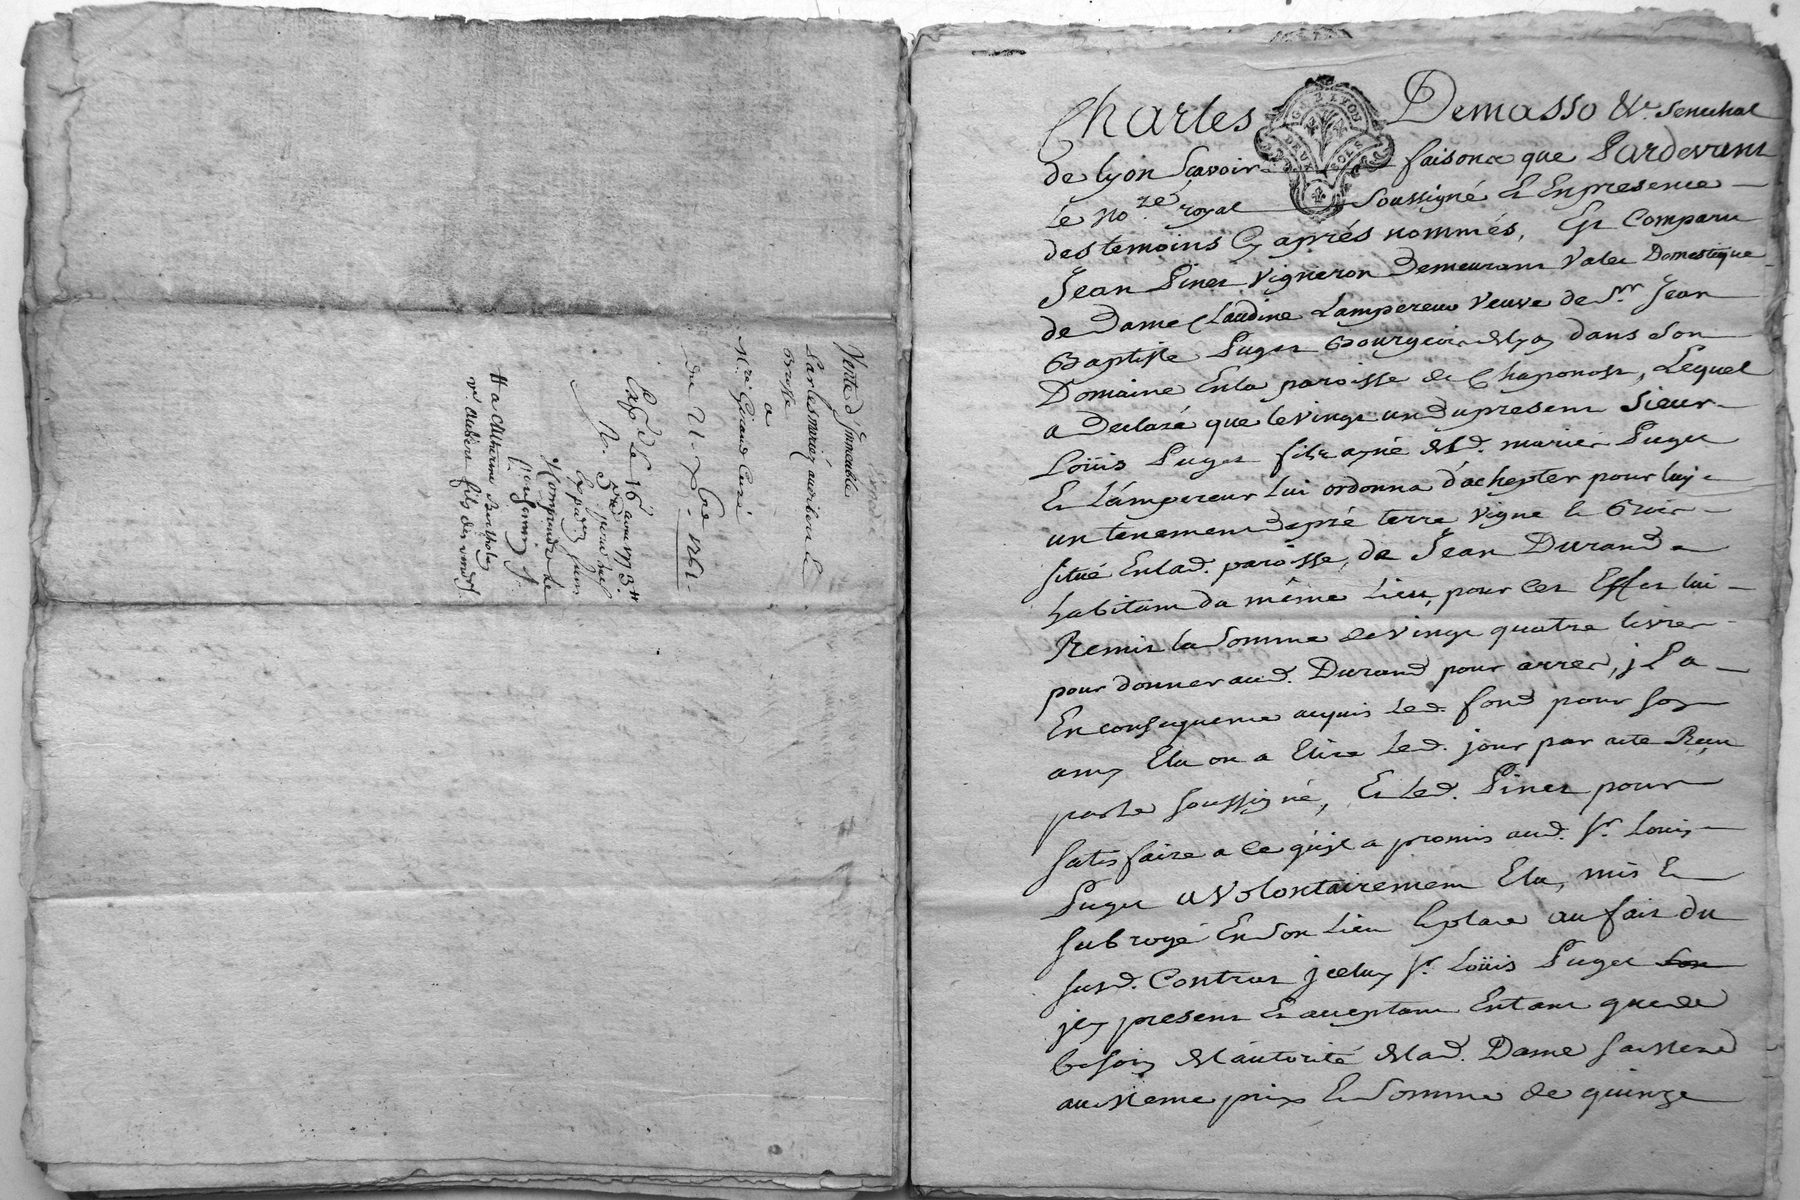 Vente d'Immeuble
Par les mariez
Brosse
a
Mre Giraud Curé
du 21 7bre 1761
le 16 avril 1773 #
# a Catherine Berthola
GN. D. LYON
DEUX SOLS
Charles Demasso &c. Senechal
de lyon Scavoir faisons que Pardevant
le nore. royal soussigné Et En presence
des temoins Cy aprés nommés, Est Comparu
Jean Pinet Vigneron Demeurant Valet Domestique
de Dame Claudine Lampereur Veuve de Sr. Jean
Baptiste Puget Bourgeois de lyon dans son
Domaine En la paroisse de Chaponost, Lequel
a Declaré que le vingt un du present Sieur
Loüis Puget fils ayné de lad. mariée Puget
Et Lámpereur Lui ordonna d'achepter pour luy
un tenement de pré terre Vigne le Bois
situé En lad. paroisse, de Jean Durand
habitant du même Lieu, pour Cet Effet lui
Remit la somme de Vingt quatre livres
pour donner aud. Durand pour arres, jl a
En consequence acquis led. fond pour son
amy Elu ou a Elire led. jour par acte Reçu
par le soussigné, Et led. Pinet pour
satisfaire a ce qu'jl a promis aud. Sr. Louis
Puget a Volontairement Elu, mis Et
subrogé En son Lieu Et place au fait du
susd. Contrat jceluy Sr. Loüis Puget
jcy present Et acceptant Entant que de
besoin de l'autorité de lad. Dame sa Mere
au même prix Et somme de quinze